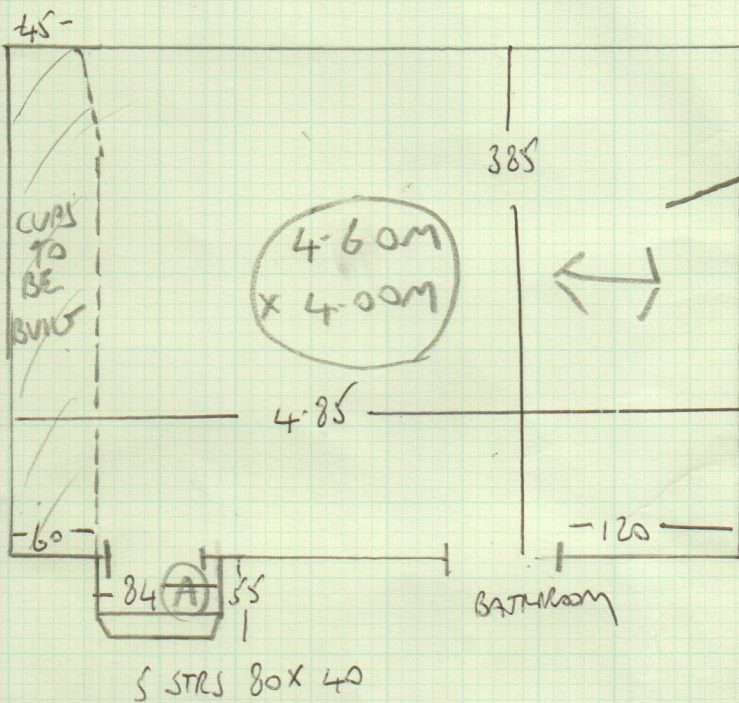 45-
385
CUPS
TO
BE
BUILT
4.60M
x 4.00M
4.85
-60-
-120
-84 A 55
BATHROOM
5 STRS 80 X 40